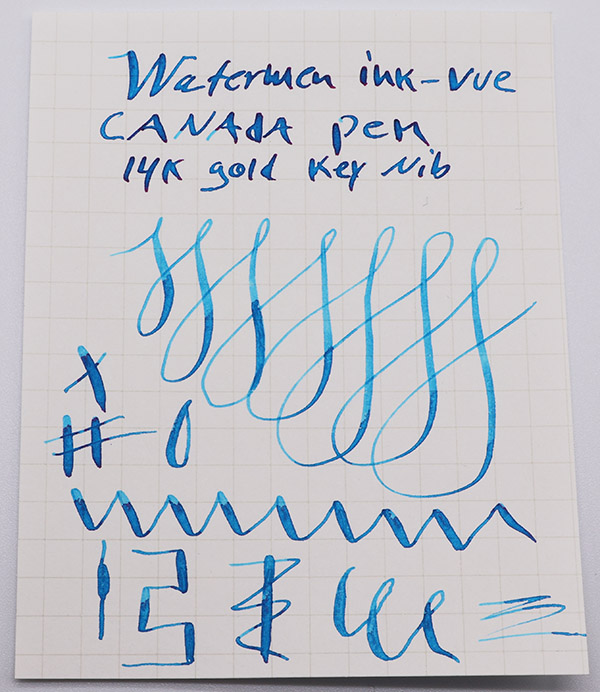 Waterman ink-vue
CANADA pen
14K gold Key Nib